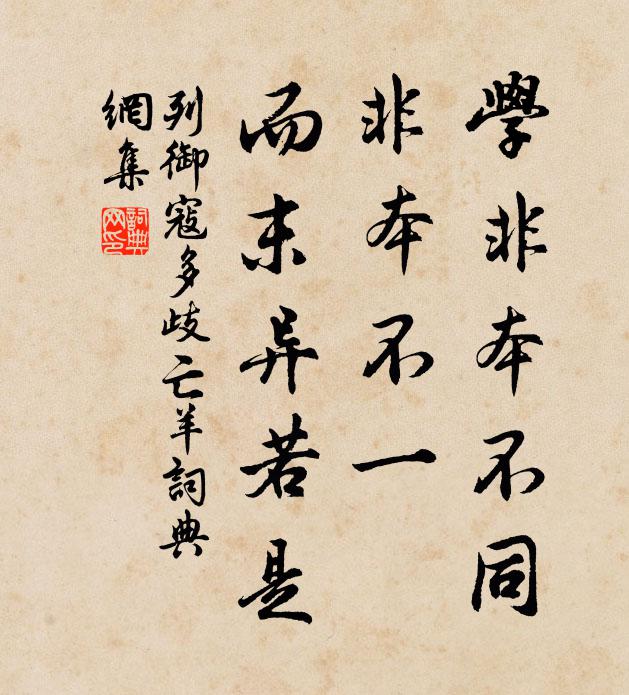 學非本不同
非本不一
而末异若是
列御寇多歧亡羊詞典
網集
詞典
网印